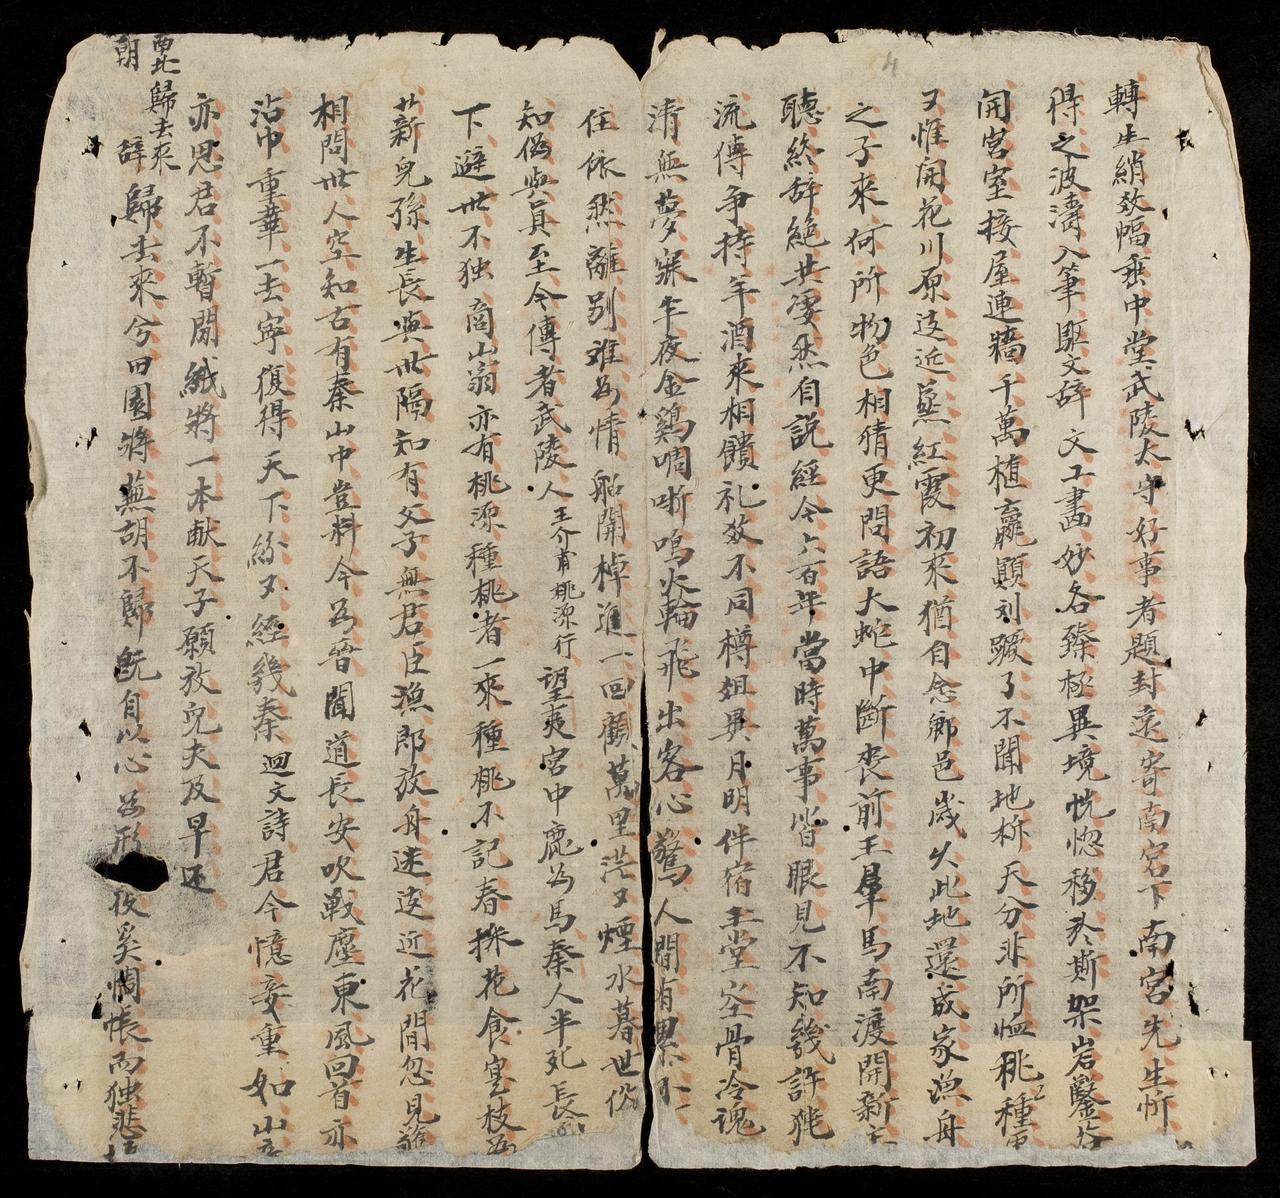 轉生綃数幅垂中堂武陵太守好事者題封遠寄南宮下南宮先生忻
得之波濤入筆驅文辞文工畵妙各臻極異境恍惚移於斯架岩鑿谷
開宮室接屋連墻千萬植嬴顚刘蹶了不聞地柝天分非所恤桃種
又惟開花川原遠近蒸紅霞初來猶自念鄉邑歲久此地還成家漁舟
之子來何所物色相猜更問語大蛇中斷喪前王羣馬南渡開新主
聽終辞絕共凄然自説經今六百年當時萬事皆眼見不知幾許猶
流傳爭持牢酒來相饋礼数不同樽俎異月明伴宿玉堂空骨冷魂
清無夢寐半夜金鷄啁哳鳴火輪飛出客心驚人間有累不
住依然離別难為情船開棹進一回顧萬里茫又煙水暮世俗
知僞與真至今傳者武陵人王介甫桃源行望夷宮中鹿為馬秦人半死長
下避世不独商山翁亦有桃源種桃者一來種桃不記春採花食實枝為
薪兒孫生長與世隔知有父子無君臣漁郎放舟迷遠近花間忽見驚
相問世人空知古有秦山中豈料今為晉聞道長安吹戰塵東風回首亦
沾巾重華一去寧復得天下紛又經幾秦迴文詩君今憶妾重如山妾
亦思君不暫閒織將一本献天子願放兒夫及早还
歸去來辞歸去來兮田園將蕪胡不歸既自以心為形役奚惆悵而独悲